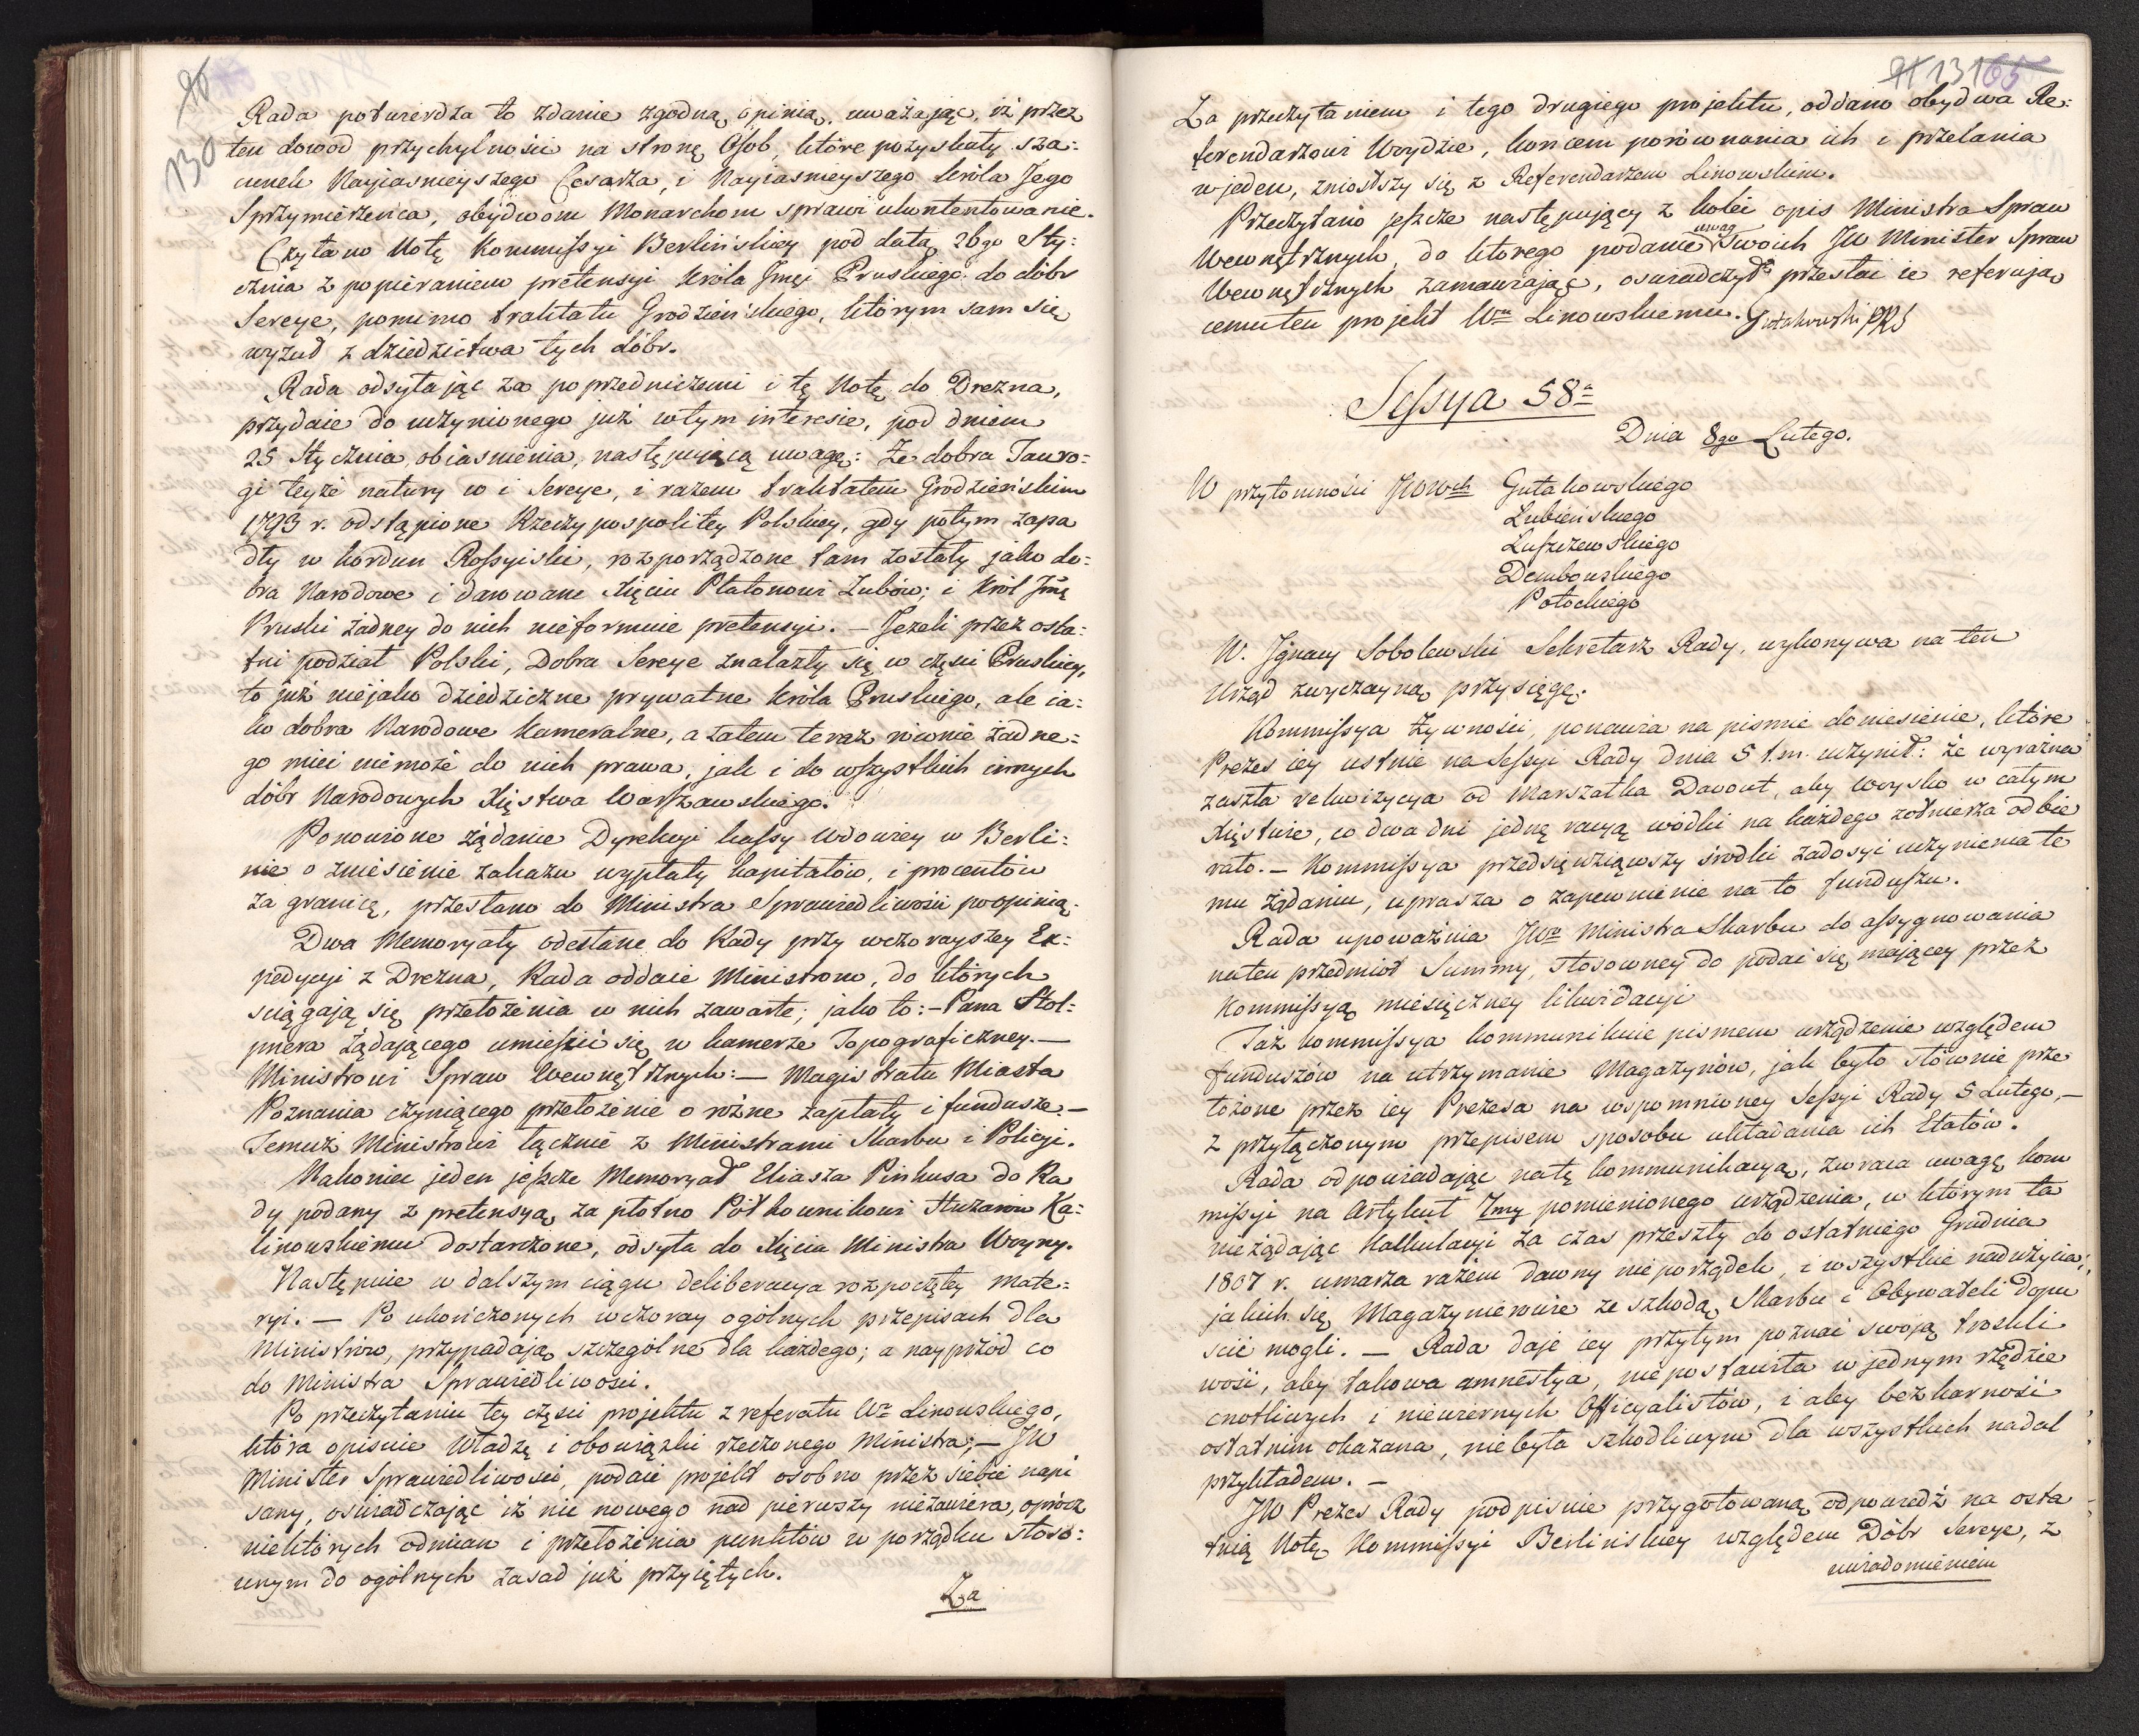 130
Rada potwierdza to zdanie zgodną opinią, uważając, iż przez
ten dowod przychylności na stronę Osób, które pozyskały sza:
cunek Nayiasnieyszego Cesarza, i Nayiasnieyszego Króla Jego
Sprzymierzeńca, obydwom Monarchom sprawi ukontentowanie.
Czytano Notę Kommissyi Berlińskiey pod datą 26go Sty:
cznia z popieraniem pretensyi Króla Jmci Pruskiego do dóbr
Sereye, pomimo traktatu Grodzieńskiego, którym sam się
wyzuł z dziedzictwa tych dóbr.
Rada odsyłając za poprzedniczemi i tę Notę do Drezna,
przydaie do uczynionego już w tym interesie, pod dniem
25 Stycznia, obiasnienia, następującą uwagę: Że dobra Tauro:
gi teyże natury co i Sereye, i razem traktatem Grodzieńskim
1793 r. odstąpione Rzeczypospolitey Polskiey, gdy potym zapa
dły w kordon Rossyiski, rozporządzone tam zostały jako do:
bra Narodowe i darowane Xięciu Platonowi Zubów; i Król Jmć
Pruski żadney do nich nieformuie pretensyi. — Jeżeli przez osta:
tni podział Polski, Dobra Sereye znalazły się w częsci Pruskiey,
to już niejako dziedziczne prywatne Króla Pruskiego, ale ia:
ko dobra Narodowe Kameralne, a zatem teraz równie żadne:
go mieć niemoże do nich prawa, jak i do wszystkich innych
dóbr Narodowych Xięstwa Warszawskiego.
Ponowione żądanie Dyrekcyi kassy wdowiey w Berli:
nie o zniesienie zakazu wypłaty kapitałów, i procentów
za granicę, przesłano do Ministra Sprawiedliwości po opinią.
Dwa Memoryały odesłane do Rady przy wczorayszey Ex:
pedycyi z Drezna, Rada oddaie Ministrom, do których
sciągają się przełożenia w nich zawarte; jako to: — Pana Stol:
pnera żądającego umieścić się w kamerze Topograficzney. —
Ministrowi Spraw Wewnętrznych: — Magistratu Miasta
Poznania czyniącego przełożenie o różne zapłaty i fundusze. —
Temuż Ministrowi łącznie z Ministrami Skarbu i Policyi.
Nakoniec jeden jeszcze Memoryał Eliasza Pinkusa do Ra
dy podany z pretensyą za płotno Półkownikowi Huzarów Ka:
linowskiemu dostarczone, odsyła do Xięcia Ministra Woyny.
Następnie w dalszym ciągu deliberacya rozpoczętey mate:
ryi. — Po ukończonych wczoray ogólnych przepisach dla
Ministrów, przypadają szczególne dla każdego; a nayprzód co
do Ministra Sprawiedliwości.
Po przeczytaniu tey części projektu z referatu Wo Linowskiego,
która opisuie Władzę i obowiązki rzeczonego Ministra; — JW
Minister Sprawiedliwości, podaie projekt osobno przez siebie napi
sany, oswiadczając iż nic nowego nad pierwszy niezawiera, oprócz
niektórych odmian i przełożenia punktów w porządku stoso:
wnym do ogólnych zasad już przyiętych.
Za
131 65
Za przeczytaniem i tego drugiego projektu, oddano obydwa Re:
ferendarzowi Woydzie, końcem porównania ich i przelania
w jeden, zniosłszy się z Referendarzem Linowskim.
Przeczytano jeszcze następujący z kolei opis Ministra Spraw
Wewnętrznych, do którego podanie uwag swoich JW Minister Spraw
Wewnętrznych zamawiając, oswiadczył przesłać ie referują
cemu ten projekt Wu Linowskiemu. Gutakowski PRS
Sessya 58a
Dnia 8go Lutego.
W przytomności JWWch Gutakowskiego
Lubieńskiego
Luszczewskiego
Dembowskiego
Potockiego
W. Ignacy Sobolewski Sekretarz Rady, wykonywa na ten
Urząd zwyczayną przysięgę.
Kommissya Żywności, ponawia na pismie doniesienie, które
Prezes iey ustnie na Sessyi Rady dnia 5 t.m. uczynił: że wyraźna
zaszła rekwizycya od Marszałka Davout, aby Woysko w całym
Xięstwie, co dwa dni jedną racyą wódki na każdego żołnierza odbie
rało. — Kommissya przedsięwziąwszy środki zadosyć uczynienia te
mu żądaniu, uprasza o zapewnienie na to funduszu.
Rada upoważnia JWo Ministra Skarbu do assygnowania
na ten przedmiot Summy, stosowney do podać się maiącey przez
Kommissyą miesięczney likwidacyi
Taż kommissya kommunikuie pismem urządzenie względem
funduszów na utrzymanie Magazynów, jak było słównie prze
łożone przez iey Prezesa na wspomnioney Sessyi Rady 5 Lutego, —
z przyłączonym przepisem sposobu układania ich Etatów.
Rada odpowiadając na tę kommunikacyą, zwraca uwagę Kom
missyi na Artykuł 7my pomienionego urządzenia, w którym ta
nieżądając Kalkulacyi za czas przeszły do ostatniego Grudnia
1807 r. umarza razem dawny nieporządek, i wszystkie nadużycia,
jakich się Magazyniewie ze szkodą Skarbu i Obywateli dopu
ścić mogli. — Rada daje iey przytym poznać swoją troskli
wość, aby takowa amnestya, niepostawiła w jednym rzędzie
cnotliwych i niewiernych Officyalistów, i aby bezkarność
ostatnim okazana, niebyła szkodliwym dla wszystkich nadal
przykładem. —
JW Prezes Rady podpisuie przygotowaną odpowiedź na osta
tnią Notę Kommissyi Berlińskiey względem Dóbr Sereye, z
uwiadomieniem